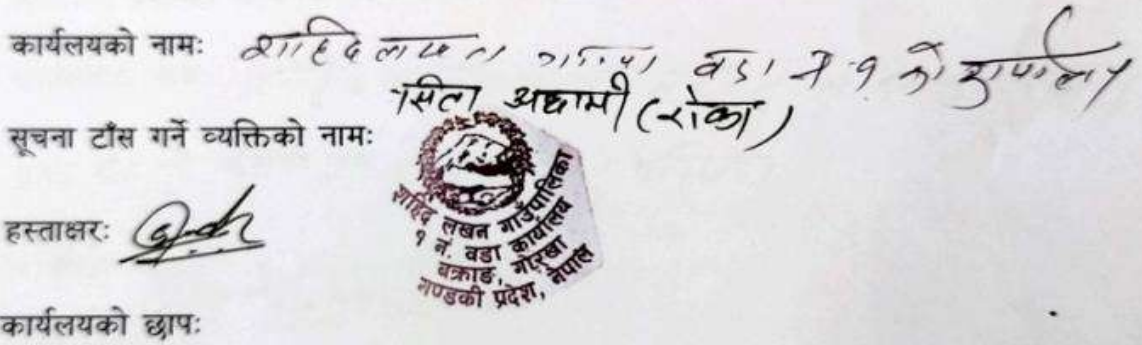 कार्यलयको नामः शाहिद लखन गा.पा. वडा नं १ को कार्यालय
सूचना टाँस गर्ने व्यक्तिको नामः सिता अछामी (रोका)
हस्ताक्षरः
शाहिद लखन गाउँपालिका
१ नं. वडा कार्यालय
बक्राङ, गोरखा
गण्डकी प्रदेश, नेपाल
कार्यलयको छापः